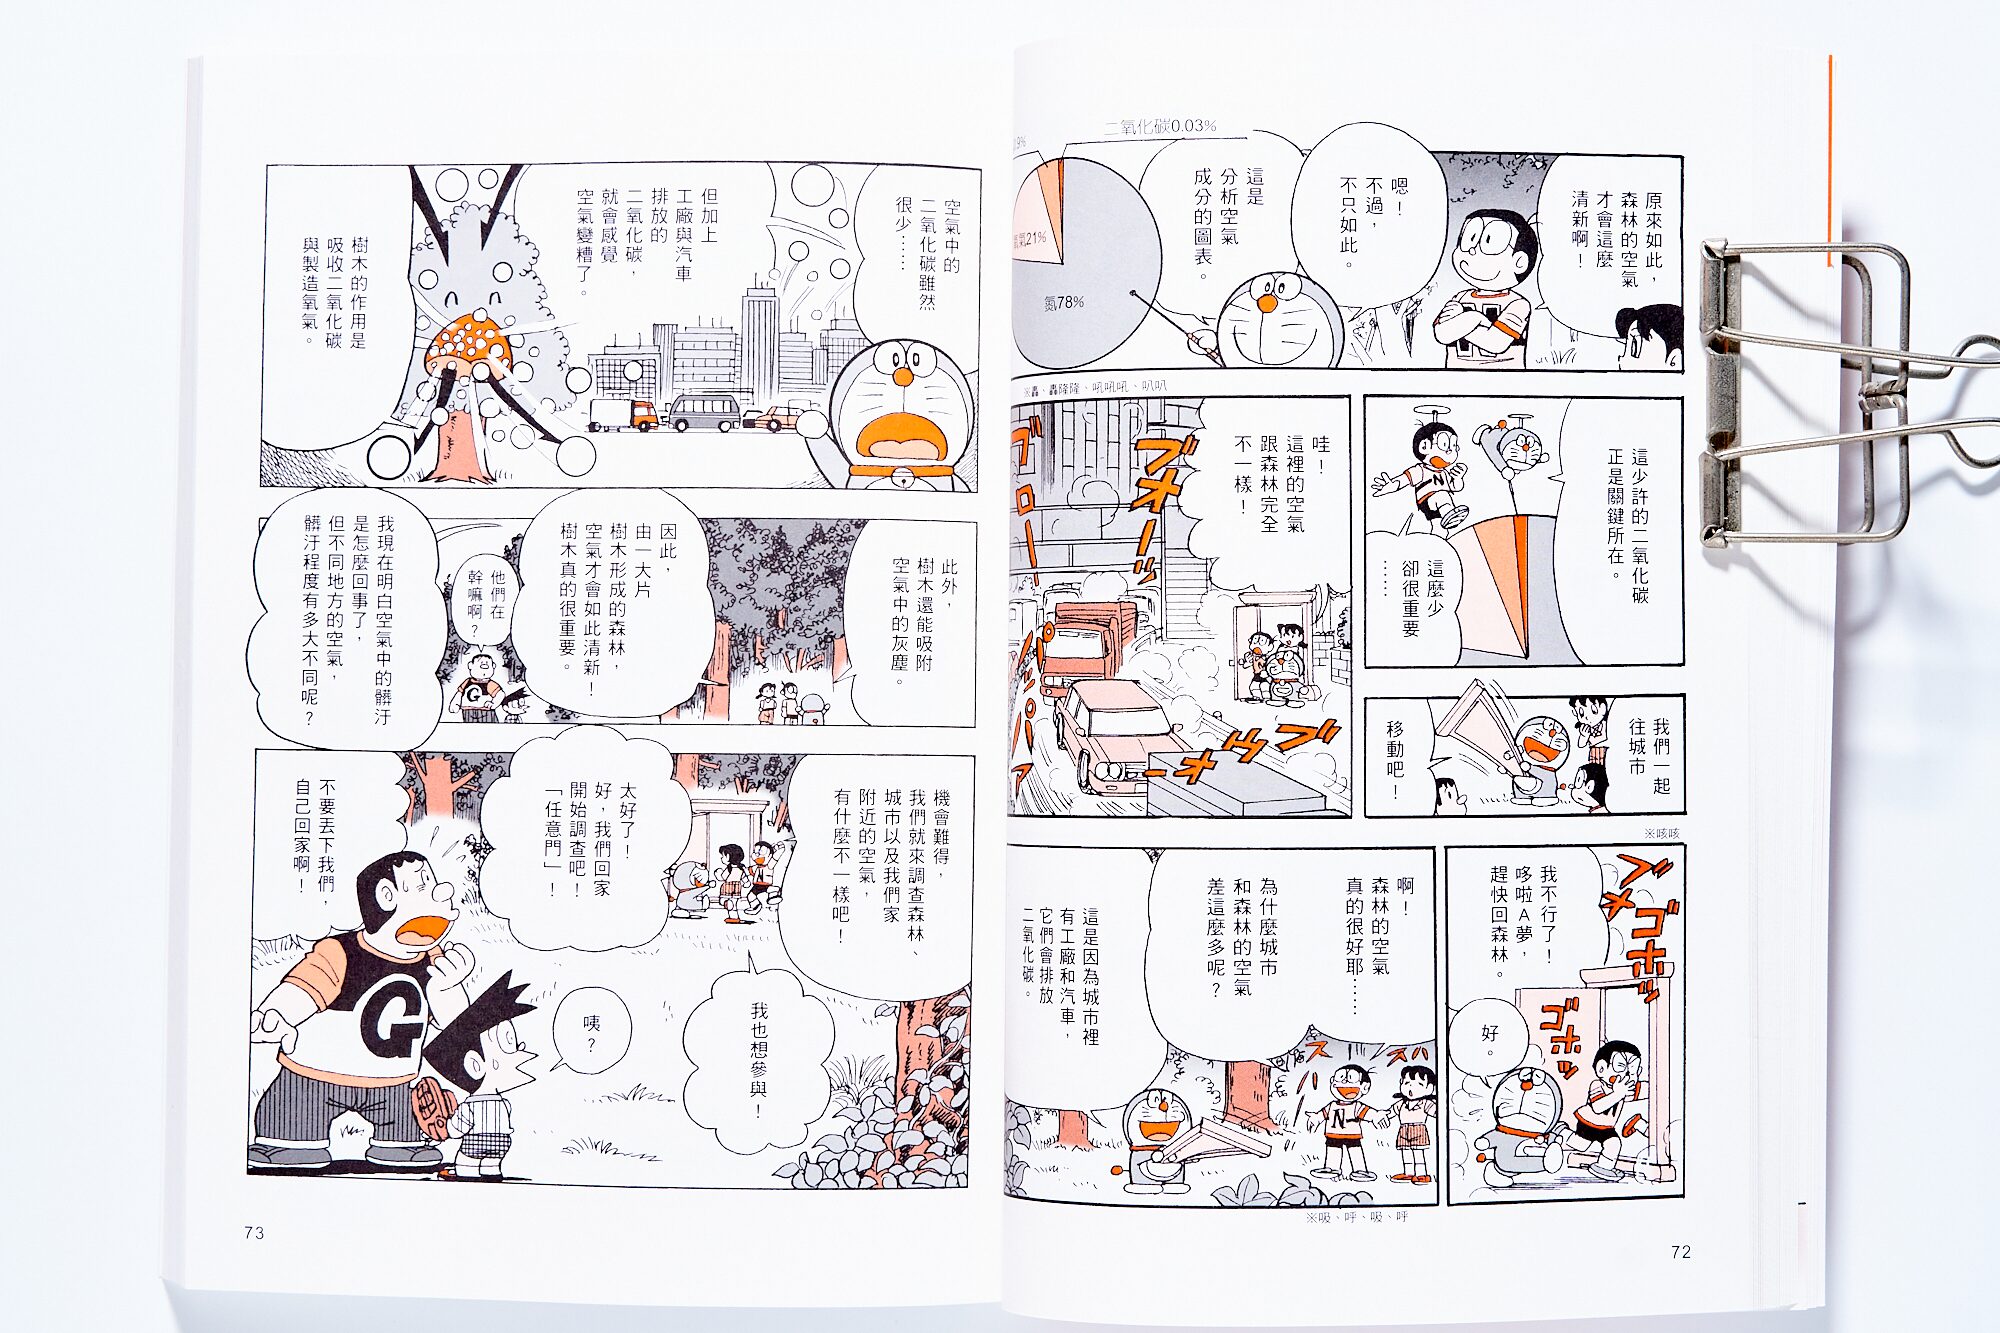 原來如此，
森林的空氣
才會這麼
清新啊！
嗯！
不過，
不只如此。
這是
分析空氣
成分的圖表。
二氧化碳0.03%
氣21%
氮78%
這少許的二氧化碳
正是關鍵所在。
這麼少
卻很重要
……
※轟、轟隆隆、吼吼吼、叭叭
哇！
這裡的空氣
跟森林完全
不一樣！
ブオーッ
ゴロロー
パパパァ
ブゲホー
我們一起
往城市
移動吧！
※咳咳
我不行了！
哆啦A夢，
趕快回森林。
好。
ゲホッ
ゴホッ
ゴホッ
啊！
森林的空氣
真的很好耶……
為什麼城市
和森林的空氣
差這麼多呢？
這是因為城市裡
有工廠和汽車，
它們會排放
二氧化碳。
スハ
スハ
N
※吸、呼、吸、呼
72
空氣中的
二氧化碳雖然
很少……
但加上
工廠與汽車
排放的
二氧化碳，
就會感覺
空氣變糟了。
樹木的作用是
吸收二氧化碳
與製造氧氣。
此外，
樹木還能吸附
空氣中的灰塵。
因此，
由一大片
樹木形成的森林，
空氣才會如此清新！
樹木真的很重要。
他們在
幹嘛啊？
我現在明白空氣中的髒汙
是怎麼回事了，
但不同地方的空氣，
髒汙程度有多大不同呢？
G
機會難得，
我們就來調查森林、
城市以及我們家
附近的空氣，
有什麼不一樣吧！
太好了！
好，我們回家
開始調查吧！
「任意門」！
不要丟下我們，
自己回家啊！
G
咦？
我也想參與！
73